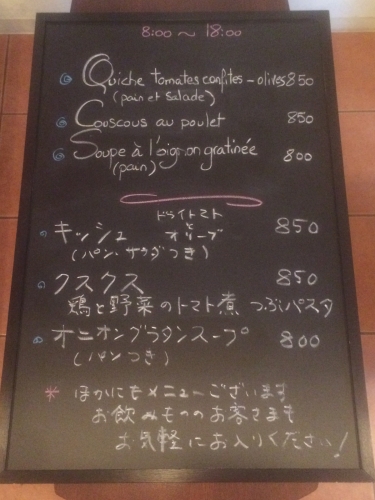 8:00 ～ 18:00
Quiche tomates confites - olives 850
(pain et salade)
Couscous au poulet 850
Soupe à l'oignon gratinée 800
(pain)
キッシュ ドライトマトとオリーブ 850
(パン・サラダつき)
クスクス 850
鶏と野菜のトマト煮 つぶパスタ
オニオングラタンスープ 800
(パンつき)
* ほかにもメニューございます
お飲みもののお客さまも
お気軽にお入りください!